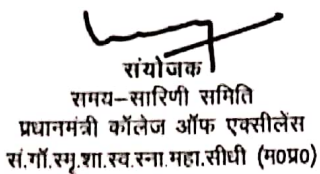 संयोजक
समय-सारिणी समिति
प्रधानमंत्री कॉलेज ऑफ एक्सीलेंस
सं.गाँ.स्मृ.शा.स्व.स्ना.महा.सीधी (म०प्र०)